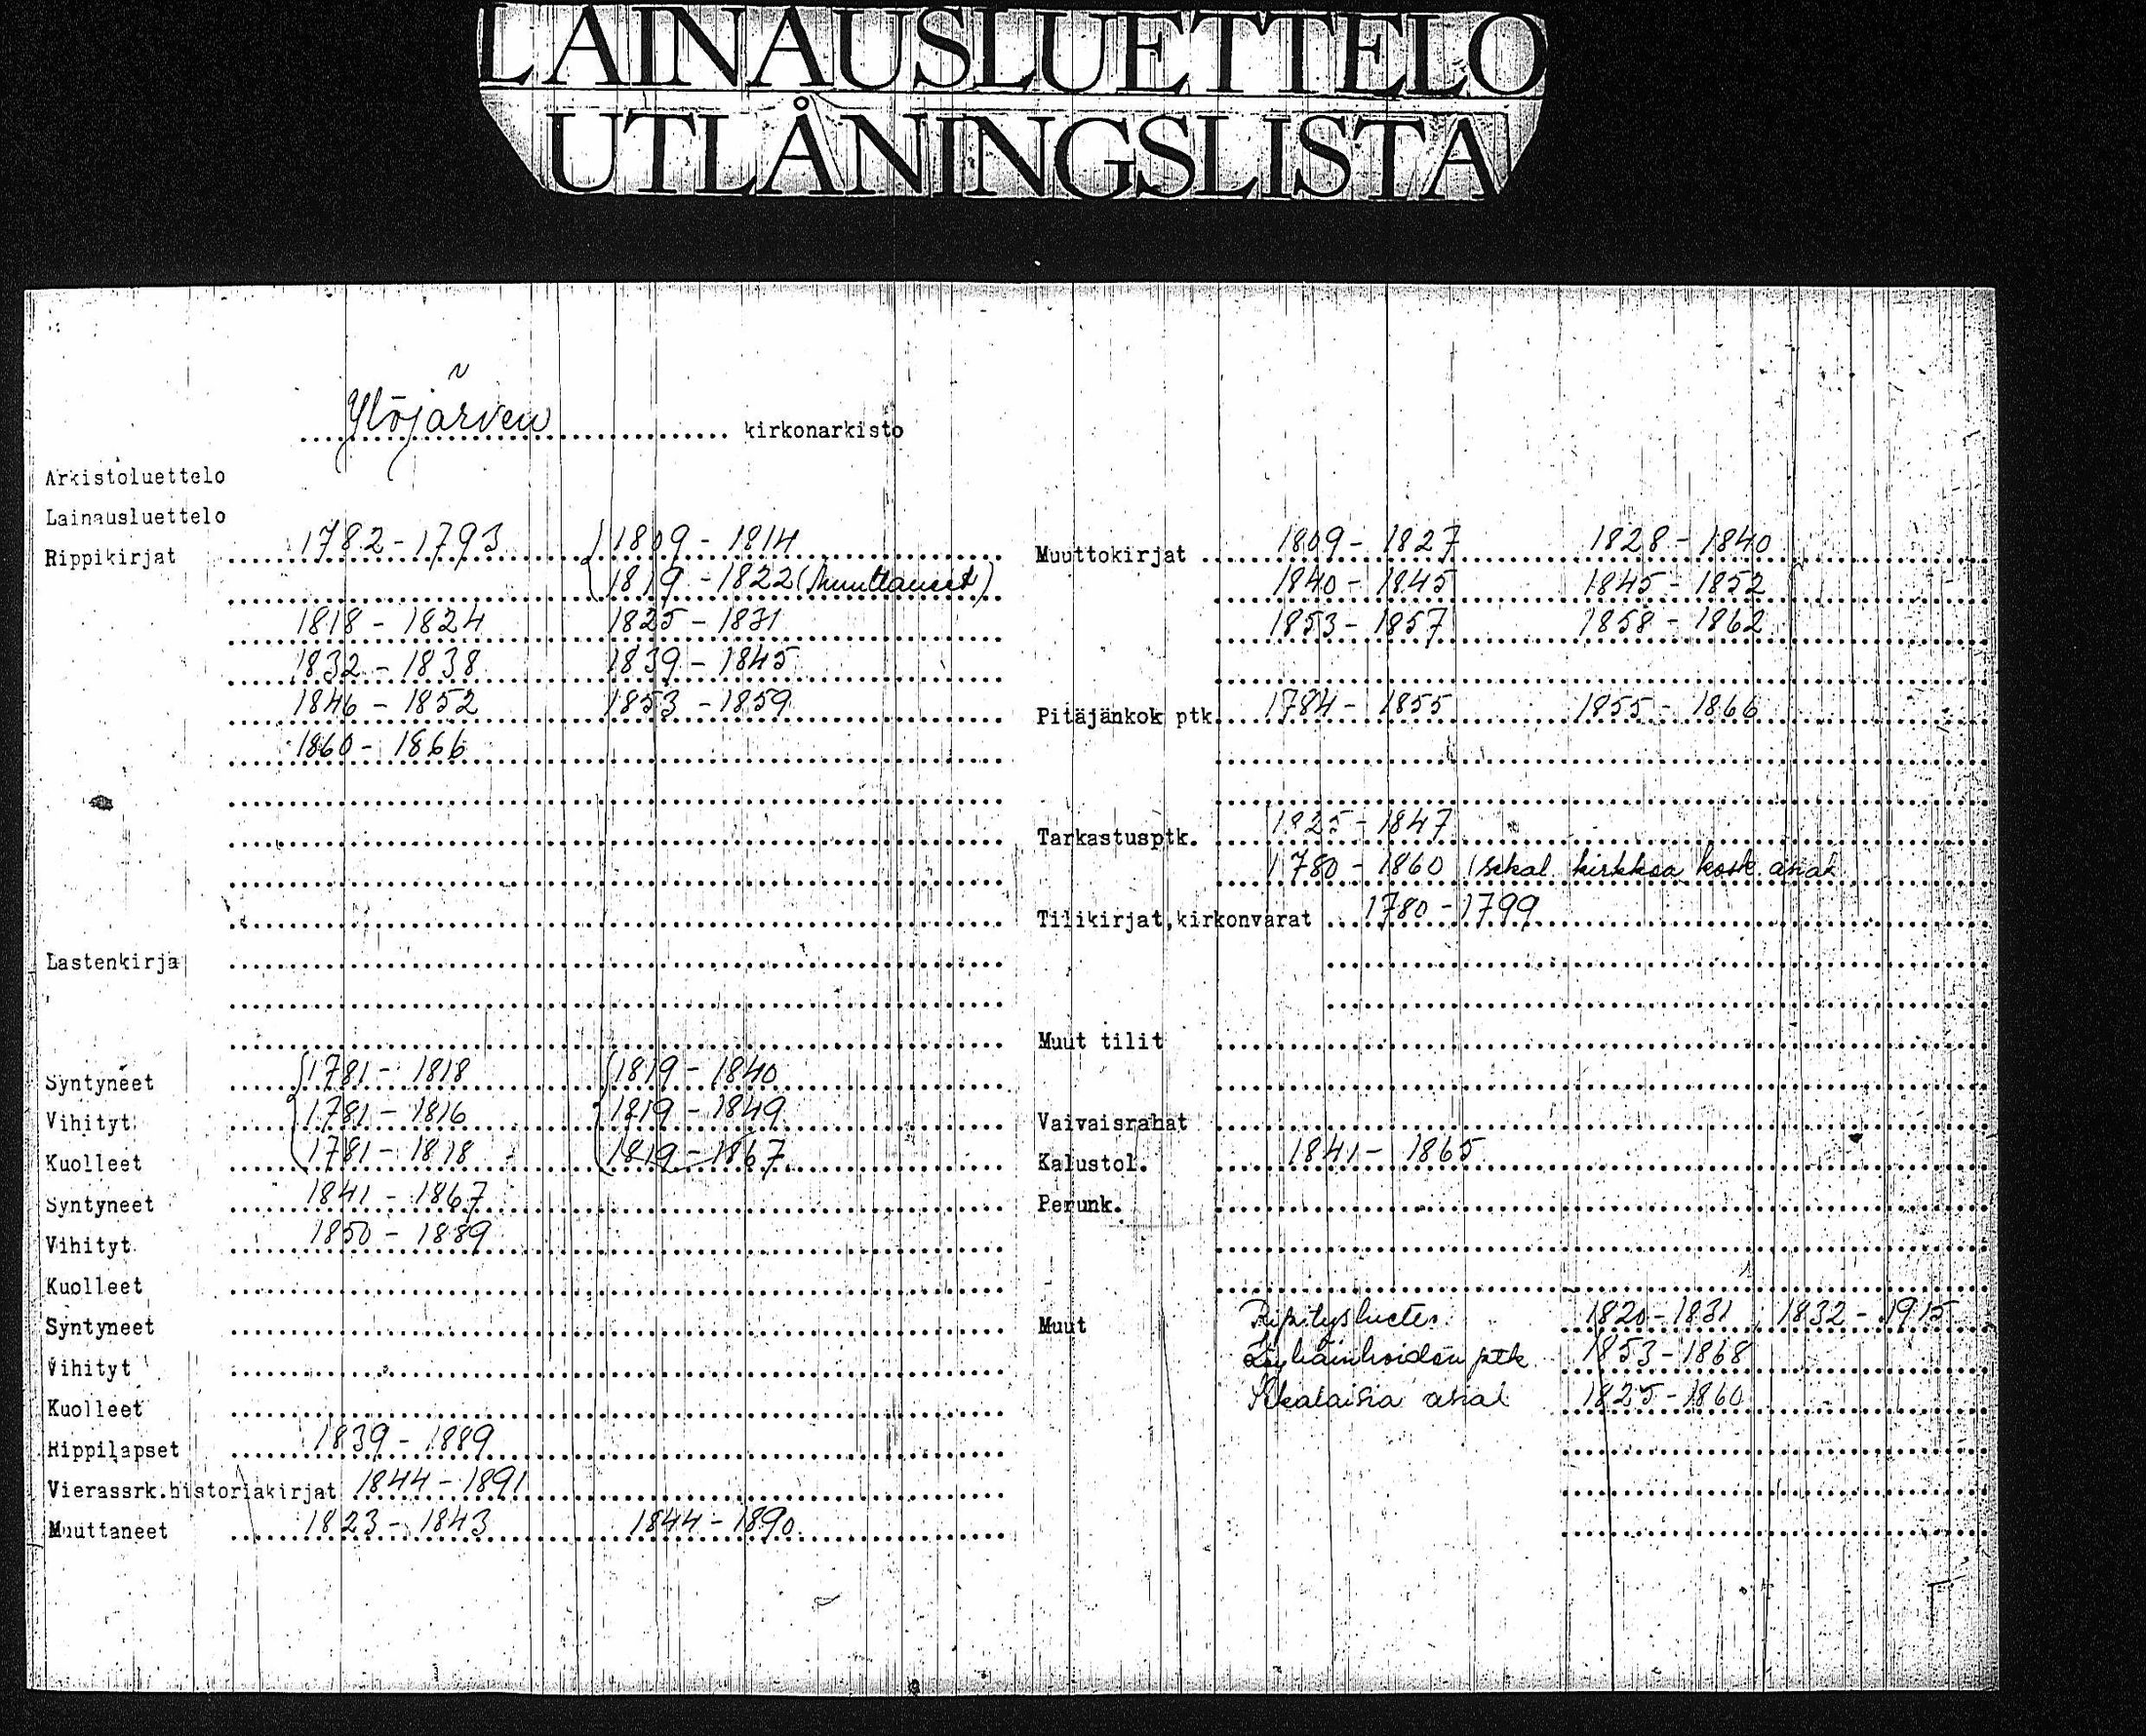 LAINAUSLUETTELO
UTLÅNINGSLISTA
Ylöjärven kirkonarkisto
Arkistoluettelo
Lainausluettelo
Rippikirjat 1782-1793 1809-1814
1819-1822 (muuttaneet)
1818-1824 1825-1831
1832-1838 1839-1845
1846-1852 1853-1859
1860-1866
Lastenkirja
Syntyneet 1781-1818 1819-1840
Vihityt 1781-1816 1819-1849
Kuolleet 1781-1818 1819-1867
Syntyneet 1841-1867
Vihityt 1850-1889
Kuolleet
Syntyneet
Vihityt
Kuolleet
Rippilapset 1839-1889
Vierassrk.historiakirjat 1844-1891
Muuttaneet 1823-1843 1844-1890
Muuttokirjat 1809-1827 1828-1840
1840-1845 1845-1852
1853-1857 1858-1862
Pitäjänkok ptk. 1784-1855 1855-1866
Tarkastusptk. 1825-1847
1780-1860 (sekal. kirkkoa kosk. asiat
Tilikirjat,kirkonvarat 1780-1799
Muut tilit
Vaivaisrahat
Kalustol. 1841-1865
Perunk.
Muut 1820-1831, 1832-1915
ptk 1853-1868
Sekalaisia asiat 1825-1860